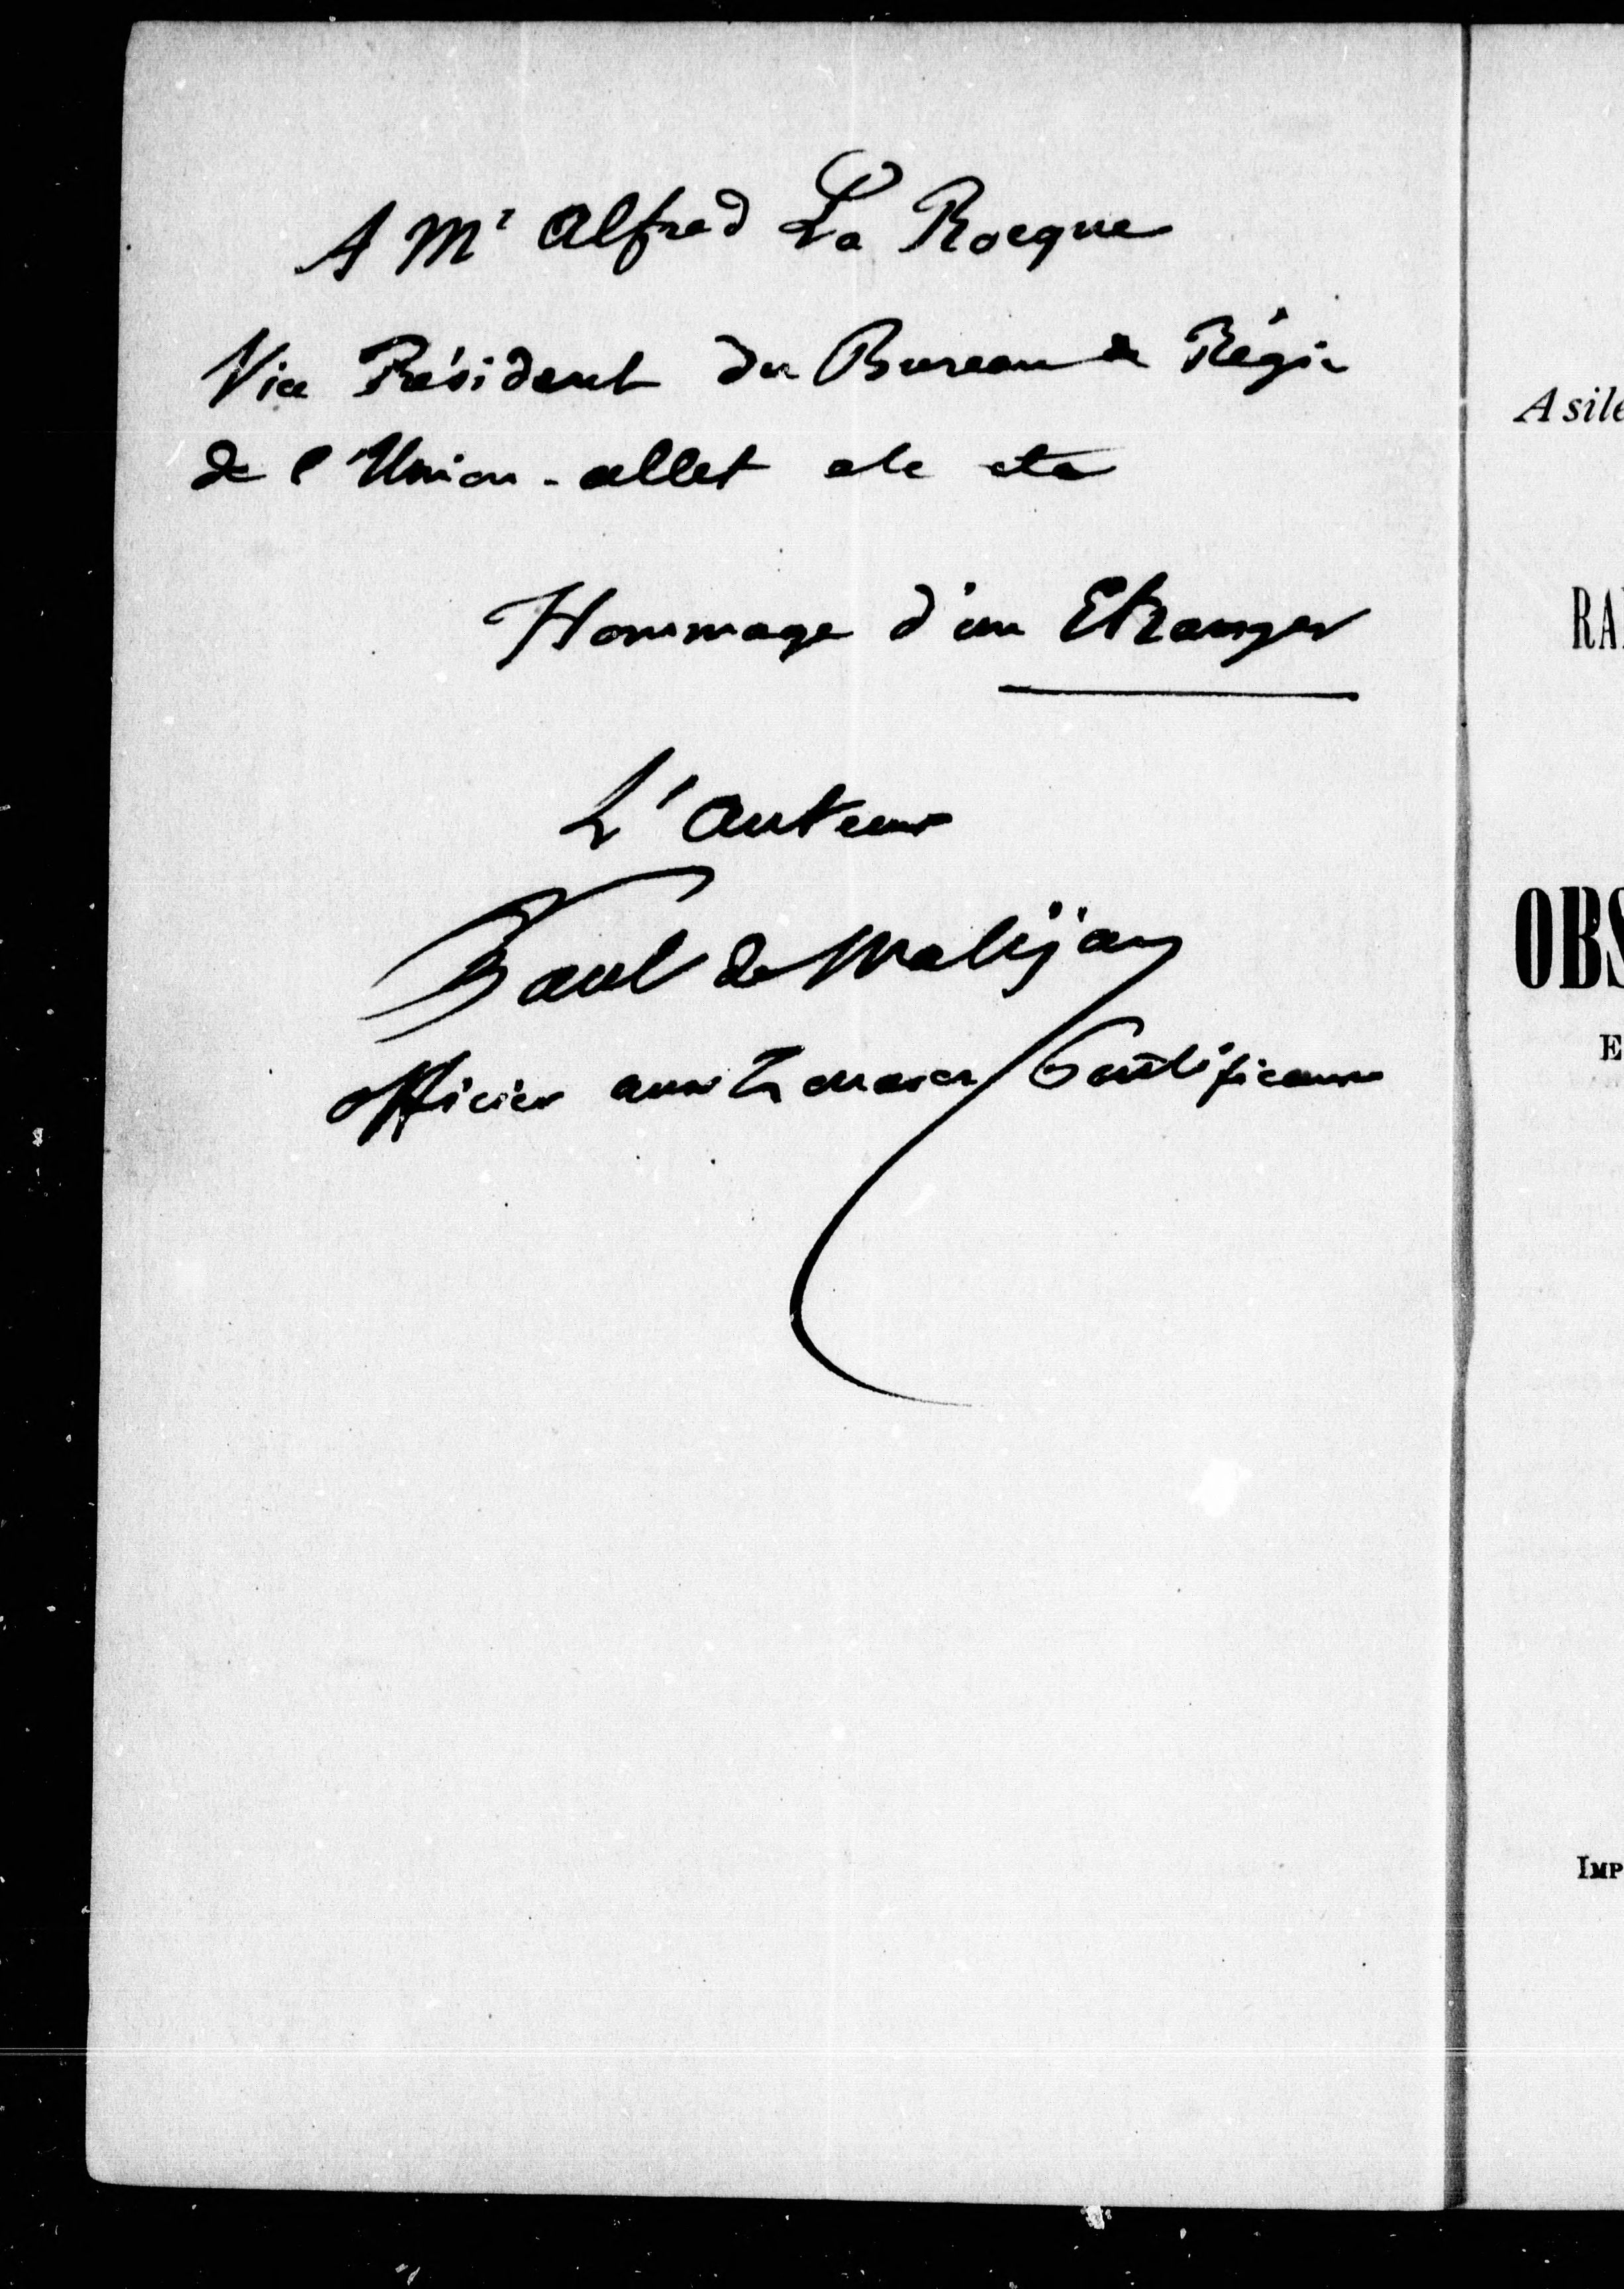 A Mr Alfred La Rocque
Vice Président du Bureau de Régie
de l'Union-allet etc etc
Hommage d'un Etranger
L'auteur
Paul de Malijay
officier aux Zouaves Pontificaux
Asile
RA
OBS
E
IMP